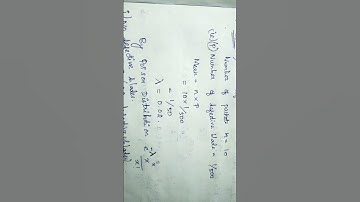 Number of packets n = 10
(W)(P) Number of defective blade = 1/500
Mean = n × P
= 10 × 1/500
= 1/50
λ = 0.02
By poisson Distribution e^-λ λ^x / x!
defective blades